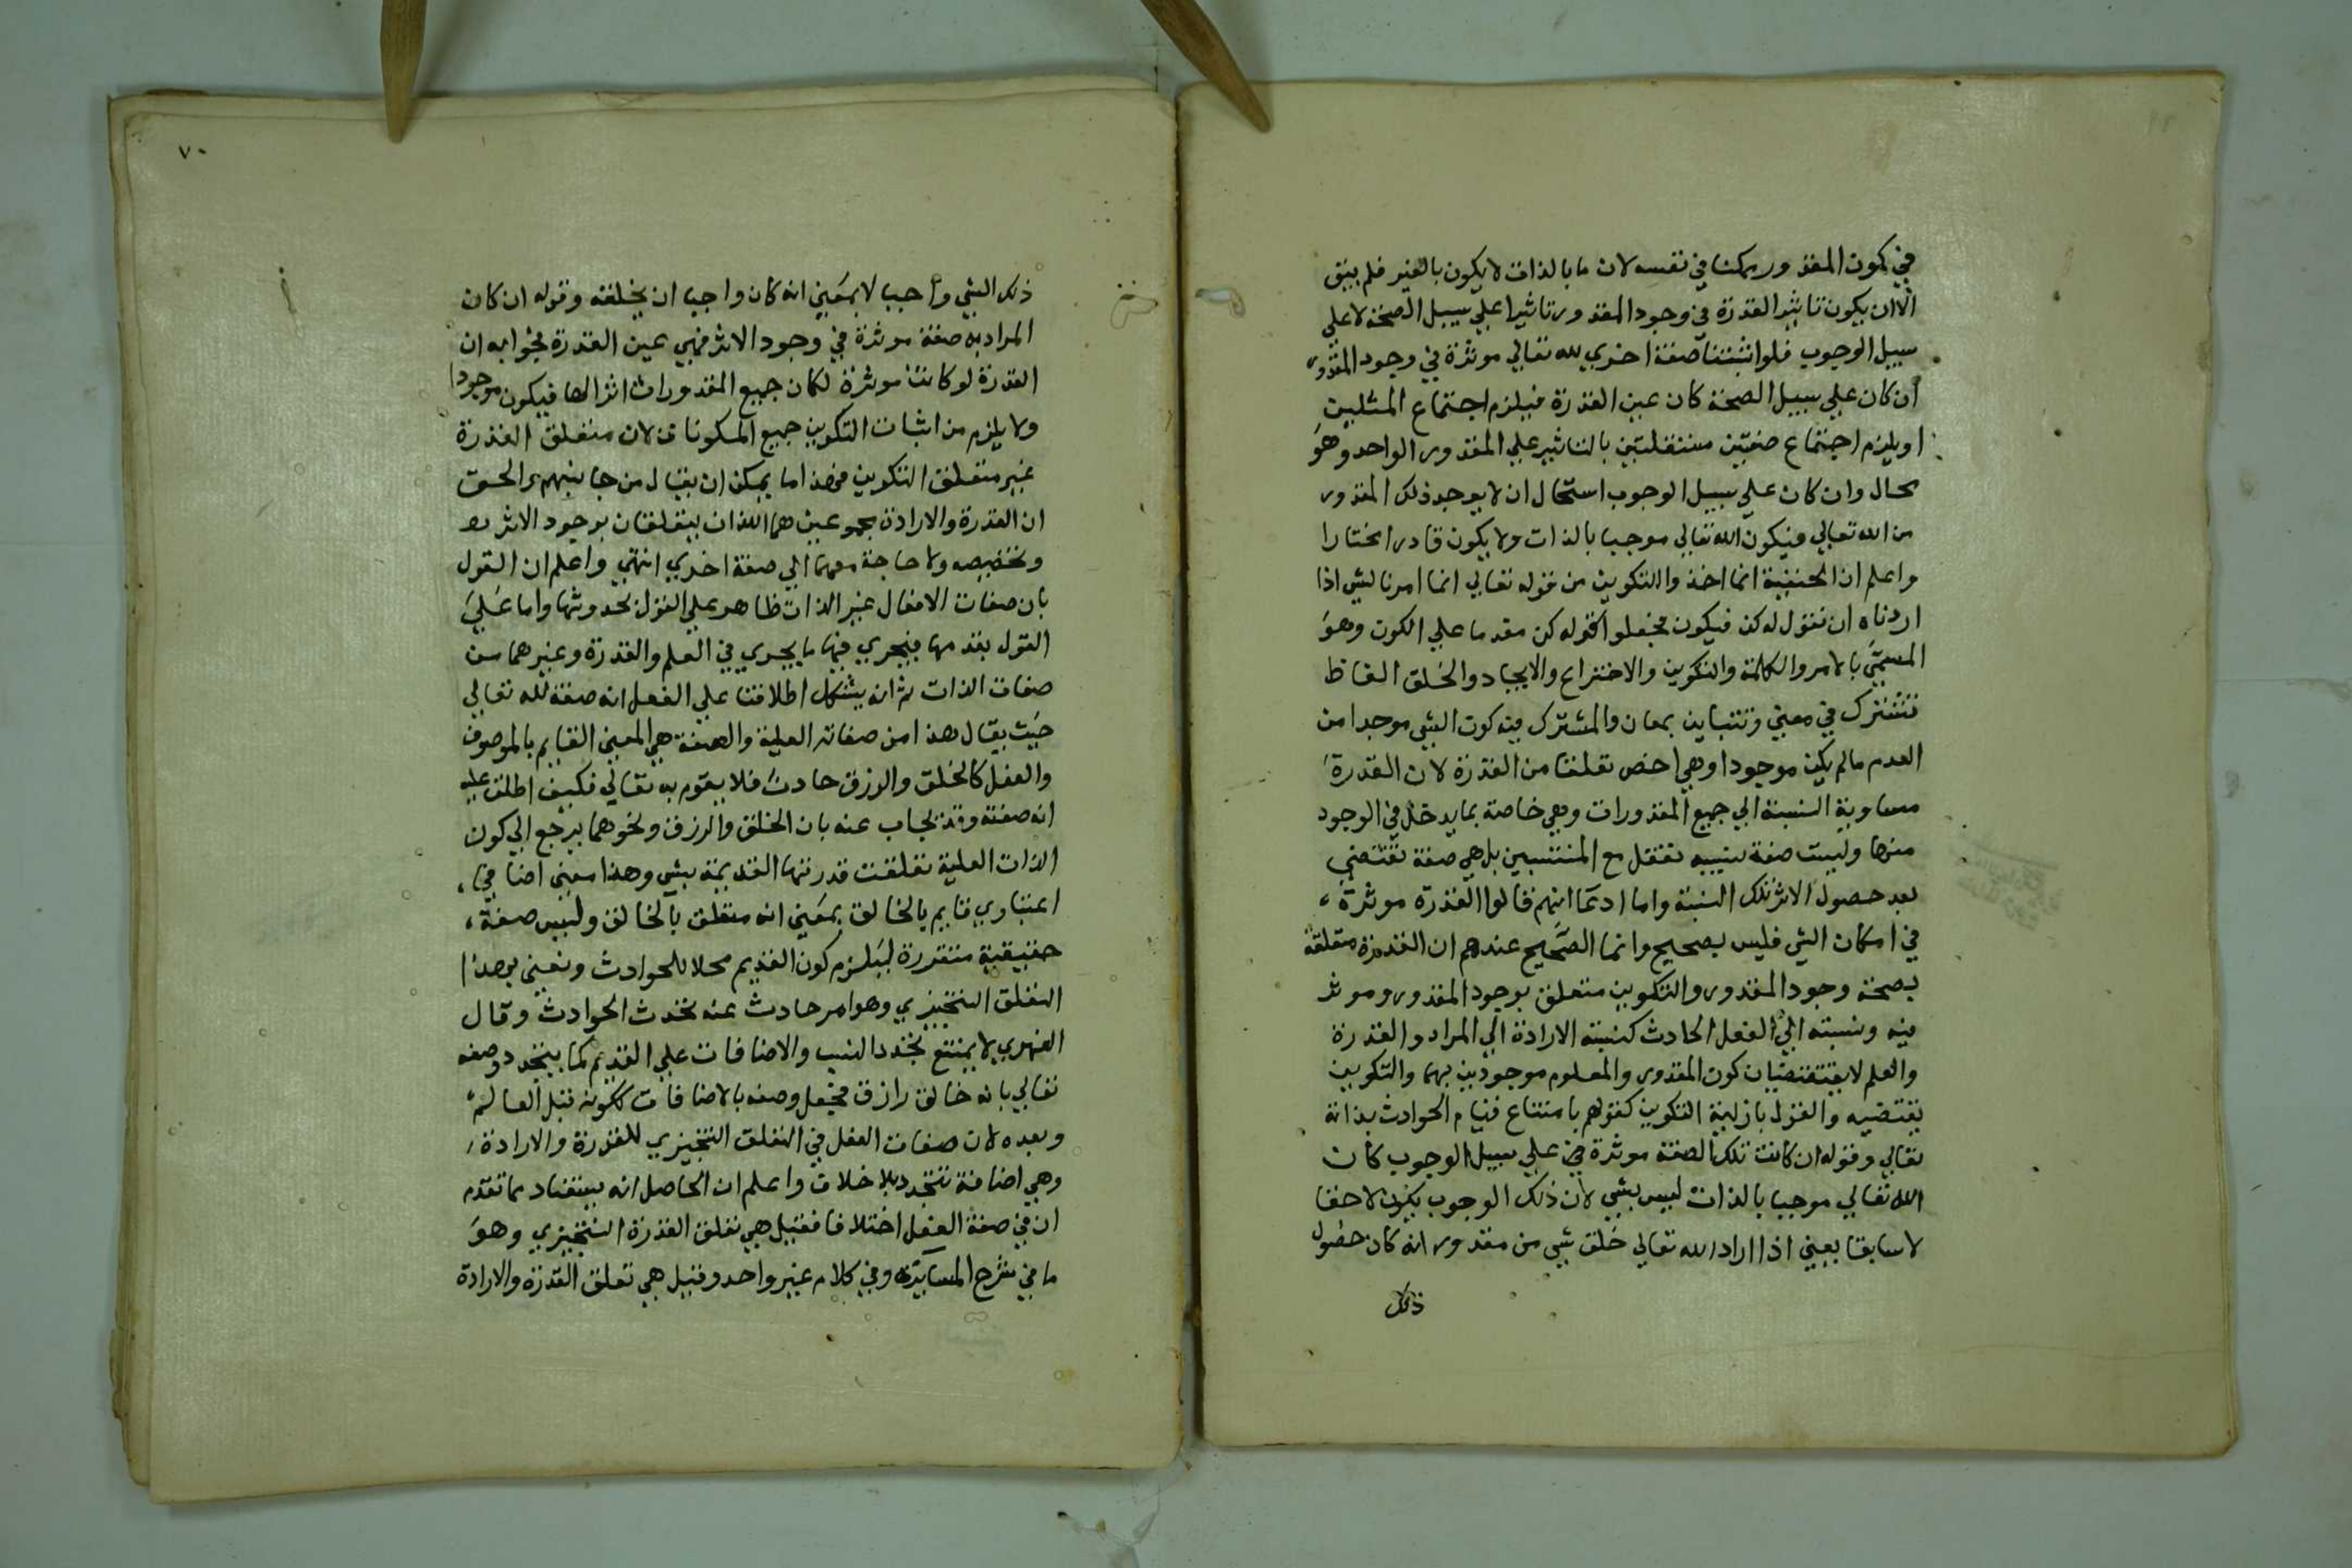 في كون المقدور ممكنا في نفسه لان ما بالذات لا يكون بالغير فلم يبق
الا ان يكون تاثير القدرة في وجود المقدور تاثيرا علي سبيل الصحة لا علي
سبيل الوجوب فلو اثبتنا صفة اخري لله تعالي موثرة في وجود المقدور
ان كان علي سبيل الصحة كان عين القدرة فيلزم اجتماع المثلين
او يلزم اجتماع صفتين مستقلتين بالتاثير علي المقدور الواحد وهو
محال وان كان علي سبيل الوجوب استحال ان لا يوجد ذلك المقدور
من الله تعالي فيكون الله تعالي موجبا بالذات ولا يكون قادرا مختارا
واعلم ان الحنفية انما اخذوا التكوين من قوله تعالي انما امرنا لشي اذا
اردناه ان نقول له كن فيكون فجعلوا قوله كن مقدما علي الكون وهو
المسمي بالامر والكلمة والتكوين والاختراع والايجاد والخلق الفاظ
تشترك في معني وتتباين بمعان والمشترك فيه كون الشي موجدا من
العدم ما لم يكن موجودا وهي اخص تعلقا من القدرة لان القدرة
مساوية النسبة الي جميع المقدورات وهي خاصة بما يدخل في الوجود
منها وليست صفة نسبيه تعقل مع المنتسبين بل هي صفة تقتضي
بعد حصول الاثر تلك النسبة واما ادعا انهم قالوا القدرة موثرة
في امكان الشي فليس بصحيح وانما الصحيح عندهم ان القدرة متعلقة
بصحة وجود المقدور والتكوين متعلق بوجود المقدور وموثر
فيه ونسبته الي الفعل الحادث كنسبة الارادة الي المراد والقدرة
والعلم لا يقتضيان كون المقدور والمعلوم موجودين بهما والتكوين
يقتضيه والقول بازلية التكوين كقولهم بامتناع قيام الحوادث بذاته
تعالي وقوله ان كانت تلك الصفة موثرة علي سبيل الوجوب كان
الله تعالي موجبا بالذات ليس بشي لان ذلك الوجوب يكون لاحقا
لا سابقا يعني اذا اراد الله تعالي خلق شي من مقدوراته كان حصول
ذلك
٧٠
ذلك الشي واجبا لا بمعني انه كان واجبا ان يخلقه وقوله ان كان
المراد به صفة موثرة في وجود الاثر فهي عين القدرة فجوابه ان
القدرة لو كانت موثرة لكان جميع المقدورات اثرا لها فيكون موجودا
ولا يلزم من اثبات التكوين جميع المكونات لان متعلق القدرة
غير متعلق التكوين فهذا ما يمكن ان يقال من جانبهم والحق
ان القدرة والارادة مجموعين هما اللذان يتعلقان بوجود الاثر
وتخصيصه ولا حاجة معهما الي صفة اخري انتهي واعلم ان القول
بان صفات الافعال غير الذات ظاهر علي القول بحدوثها واما علي
القول بقدمها فيجري فيها ما يجري في العلم والقدرة وغيرهما من
صفات الذات ثم انه يشكل اطلاقنا علي الفعل انه صفة لله تعالي
حيث يقال هذا من صفاته العلية والصفة هي المعني القايم بالموصوف
والفعل كالخلق والرزق حادث فلا يقوم به تعالي فكيف اطلق عليه
انه صفة وقد يجاب عنه بان الخلق والرزق ونحوهما يرجع الي كون
الذات العلية تعلقت قدرتها القديمة بشي وهذا معني اضافي،
اعتباري قايم بالخالق بمعني انه متعلق بالخالق وليس صفة،
حقيقية متقررة ليلزم كون القديم محلا للحوادث ونعني بهذا
التعلق التنجيزي وهو امر حادث عنه تحدث الحوادث وقال
الفهري لا يمتنع تجدد النسب والاضافات علي القديم كما يتجدد وصفه
تعالي بانه خالق رازق فجعل وصفه بالاضافات ككونه قبل العالم
وبعده لان صفات الفعل في التعلق التنجيزي للقدرة والارادة،
وهي اضافة تتجدد بلا خلاف واعلم ان الحاصل انه يستفاد مما تقدم
ان في صفة الفعل اختلافا فقيل هي تعلق القدرة التنجيزي وهو
ما في شرح المسايرة وفي كلام غير واحد وقيل هي تعلق القدرة والارادة